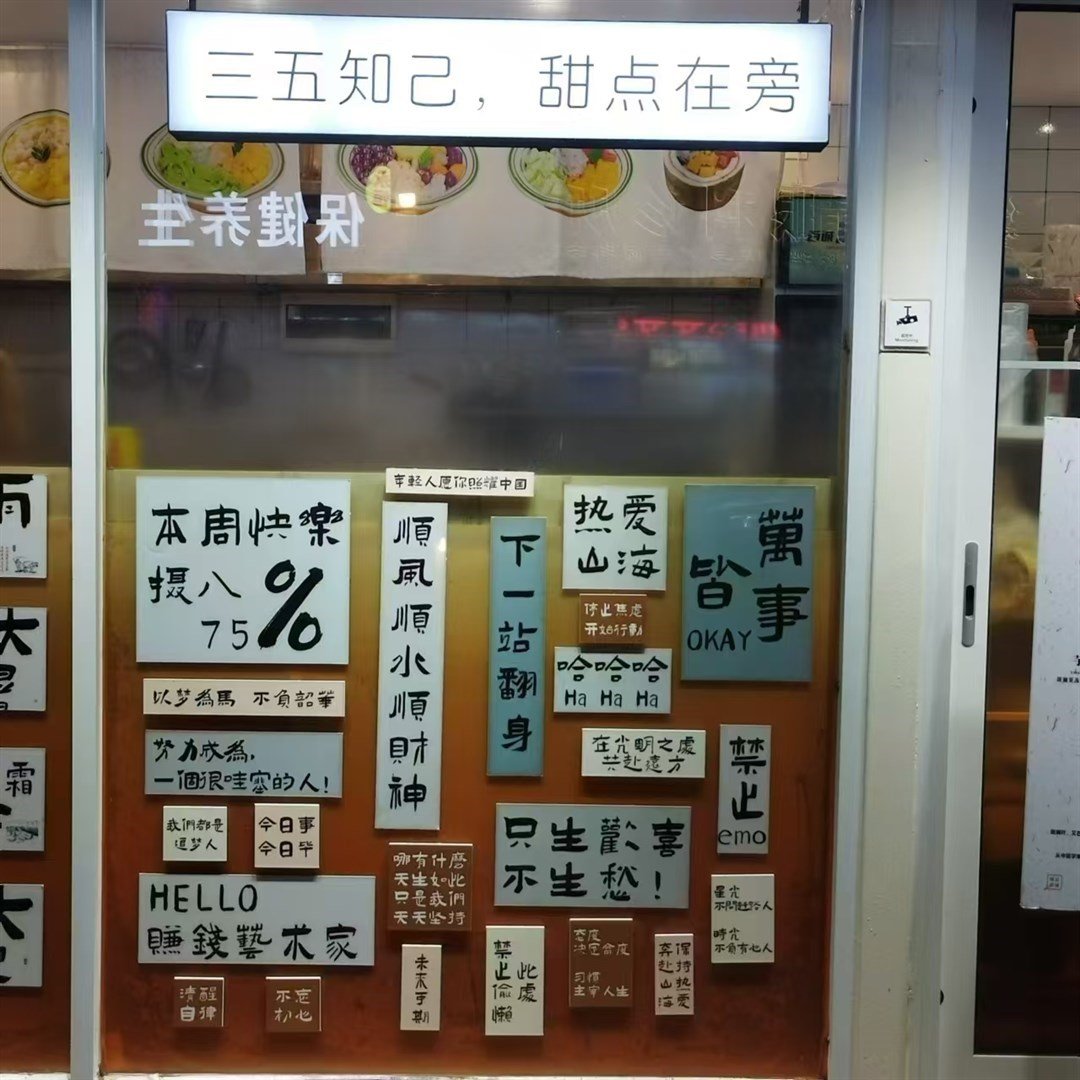 三五知己，甜点在旁
保健养生
年輕人愿你照耀中国
本周快樂
摄八
75%
順風順水順財神
下一站翻身
热爱
山海
萬事
皆
OKAY
停止焦虑
开始行動
哈哈哈
Ha Ha Ha
以梦為馬 不負韶華
努力成為,
一個很哇塞的人!
在光明之處
共赴遠方
禁止
emo
我們都是
追梦人
今日事
今日毕
只生歡喜
不生愁!
哪有什麼
天生如此
只是我們
天天坚持
HELLO
賺錢藝术家
星光
不問赶路人
時光
不負有心人
清醒
自律
不忘
初心
未来可期
此處
禁止偷懶
态度
决定命度
习惯
主宰人生
保持热爱
奔赴山海
霜
Monitoring